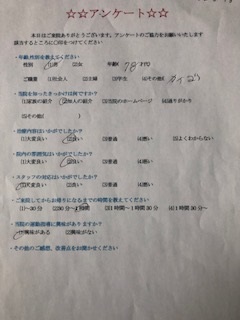 ☆☆アンケート☆☆
本日はご来院ありがとうございます。アンケートのご協力をお願いいたします
該当するところに○印をつけてください
・年齢,性別を教えてください
性別 (1)男 (2)女 年齢 78才代
ご職業 (1)社会人 (2)主婦 (3)学生 (4)その他(
・当院を知ったきっかけは何ですか?
(1)家族の紹介 (2)知人の紹介 (3)当院のホームページ (4)通りがかり
(5)その他( )
・治療内容はいかがでしたか?
(1)大変良い (2)良い (3)普通 (4)悪い (5)よくわからない
・院内の雰囲気はいかがでしたか?
(1)大変良い (2)良い (3)普通 (4)悪い
・スタッフの対応はいかがでしたか?
(1)大変良い (2)良い (3)普通 (4)悪い
・ご来院してからお帰りになるまでの時間を教えてください
(1)~30分 (2)30分~1時間 (3)1時間~1時間30分 (4)1時間30分~
・当院の運動指導に興味がありますか?
(1)興味がある (2)興味がない
・その他のご感想、改善点をお聞かせください